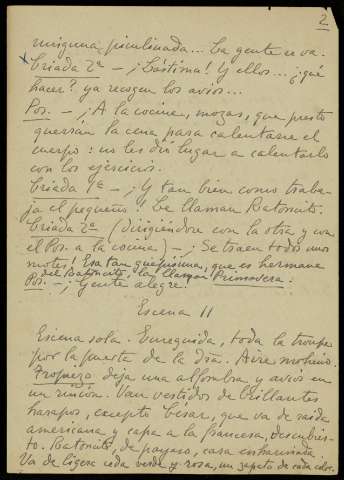 2
ninguna piculinada... La gente se va.
Criada 2ª — ¡Lástima! Y ellos... ¿qué
hacer? ya recogen los avíos...
Pos. — ¡A la cocina, mozas, que presto
querrán la cena para calentarse el
cuerpo: no les dió lugar a calentarlo
con los ejercicios.
Criada 1ª — ¡Y tan bien como traba-
ja el pequeño! Le llaman Ratoncito.
Criada 2ª (dirigiéndose con la otra y con
el Pos. a la cocina) — ¡Se traen todos unos
motes! Esa tan guapísima, que es hermana
del Ratoncito, la llaman Primavera.
Pos. — ¡Gente alegre!
Escena II
Escena sola. Enseguida, toda la troupe
por la puerta de la dra. Aire mohino.
Tropiezo deja una alfombra y avíos en
un rincón. Van vestidos de brillantes
harapos, excepto César, que va de raída
americana y capa a la francesa, descubier-
to. Ratoncito, de payaso, cara enharinada.
Va de ligera seda verde y rosa, un zapato de cada color.